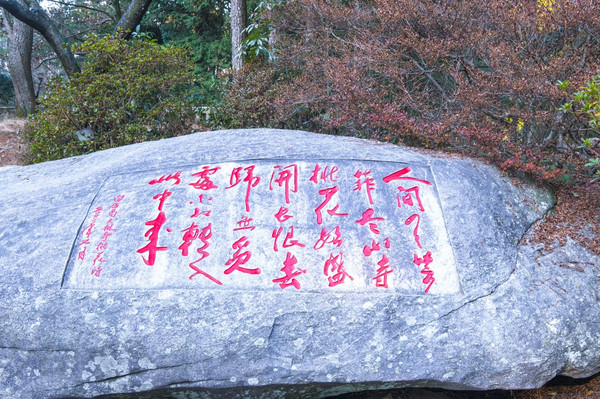 人间四月芳
菲尽山寺
桃花始盛
開长恨春
歸无覓
處不知轉入
此中来